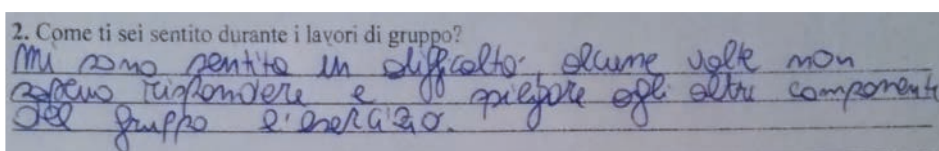 2. Come ti sei sentito durante i lavori di gruppo?
Mi sono sentito in difficolto. alcune volte non
sapevo rispondere e spiegare agli altri componenti
del gruppo l'esercizio.